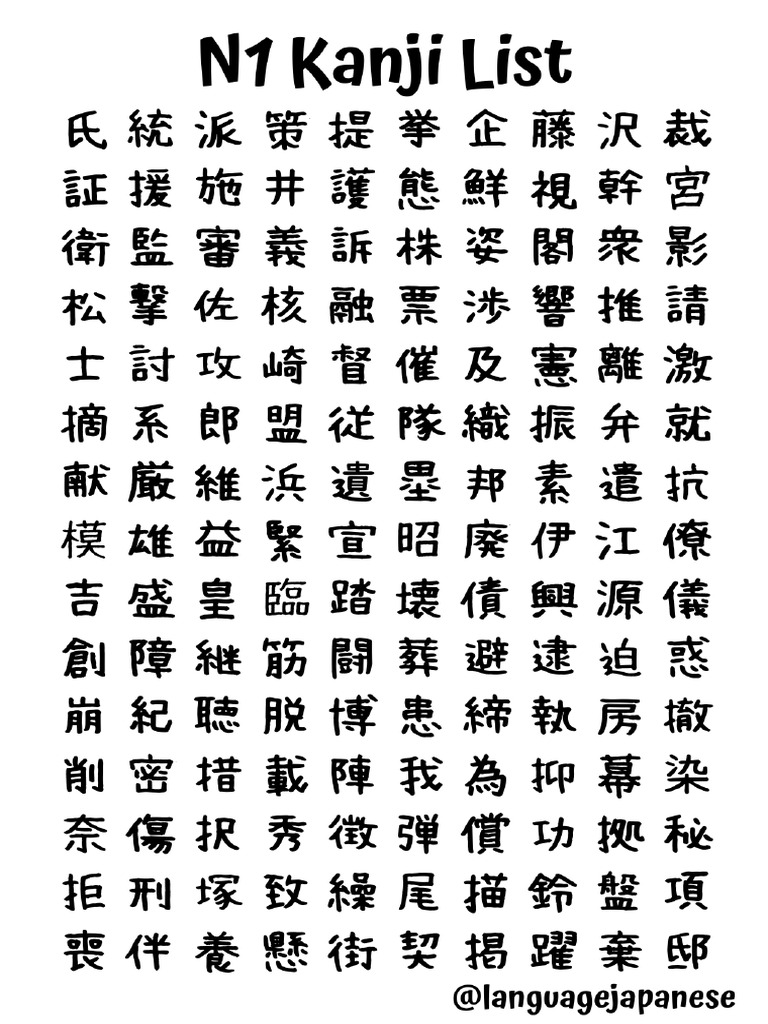 N1 Kanji List
氏 統 派 策 提 挙 企 藤 沢 裁
証 援 施 井 護 熊 鮮 視 幹 宮
衛 監 審 義 訴 株 姿 閣 衆 影
松 撃 佐 核 融 票 渉 響 推 請
士 討 攻 崎 督 催 及 憲 離 激
摘 系 郎 盟 従 隊 織 振 弁 就
献 厳 維 浜 遺 塁 邦 素 遣 抗
模 雄 益 緊 宣 昭 廃 伊 江 僚
吉 盛 皇 臨 踏 壊 債 興 源 儀
創 障 継 筋 闘 葬 避 逮 迫 惑
崩 紀 聴 脱 博 患 締 執 房 撤
削 密 措 載 陣 我 為 抑 幕 染
奈 傷 択 秀 徴 弾 償 功 拠 秘
拒 刑 塚 致 繰 尾 描 鈴 盤 項
喪 伴 養 懸 街 契 掲 躍 棄 邸
@languagejapanese